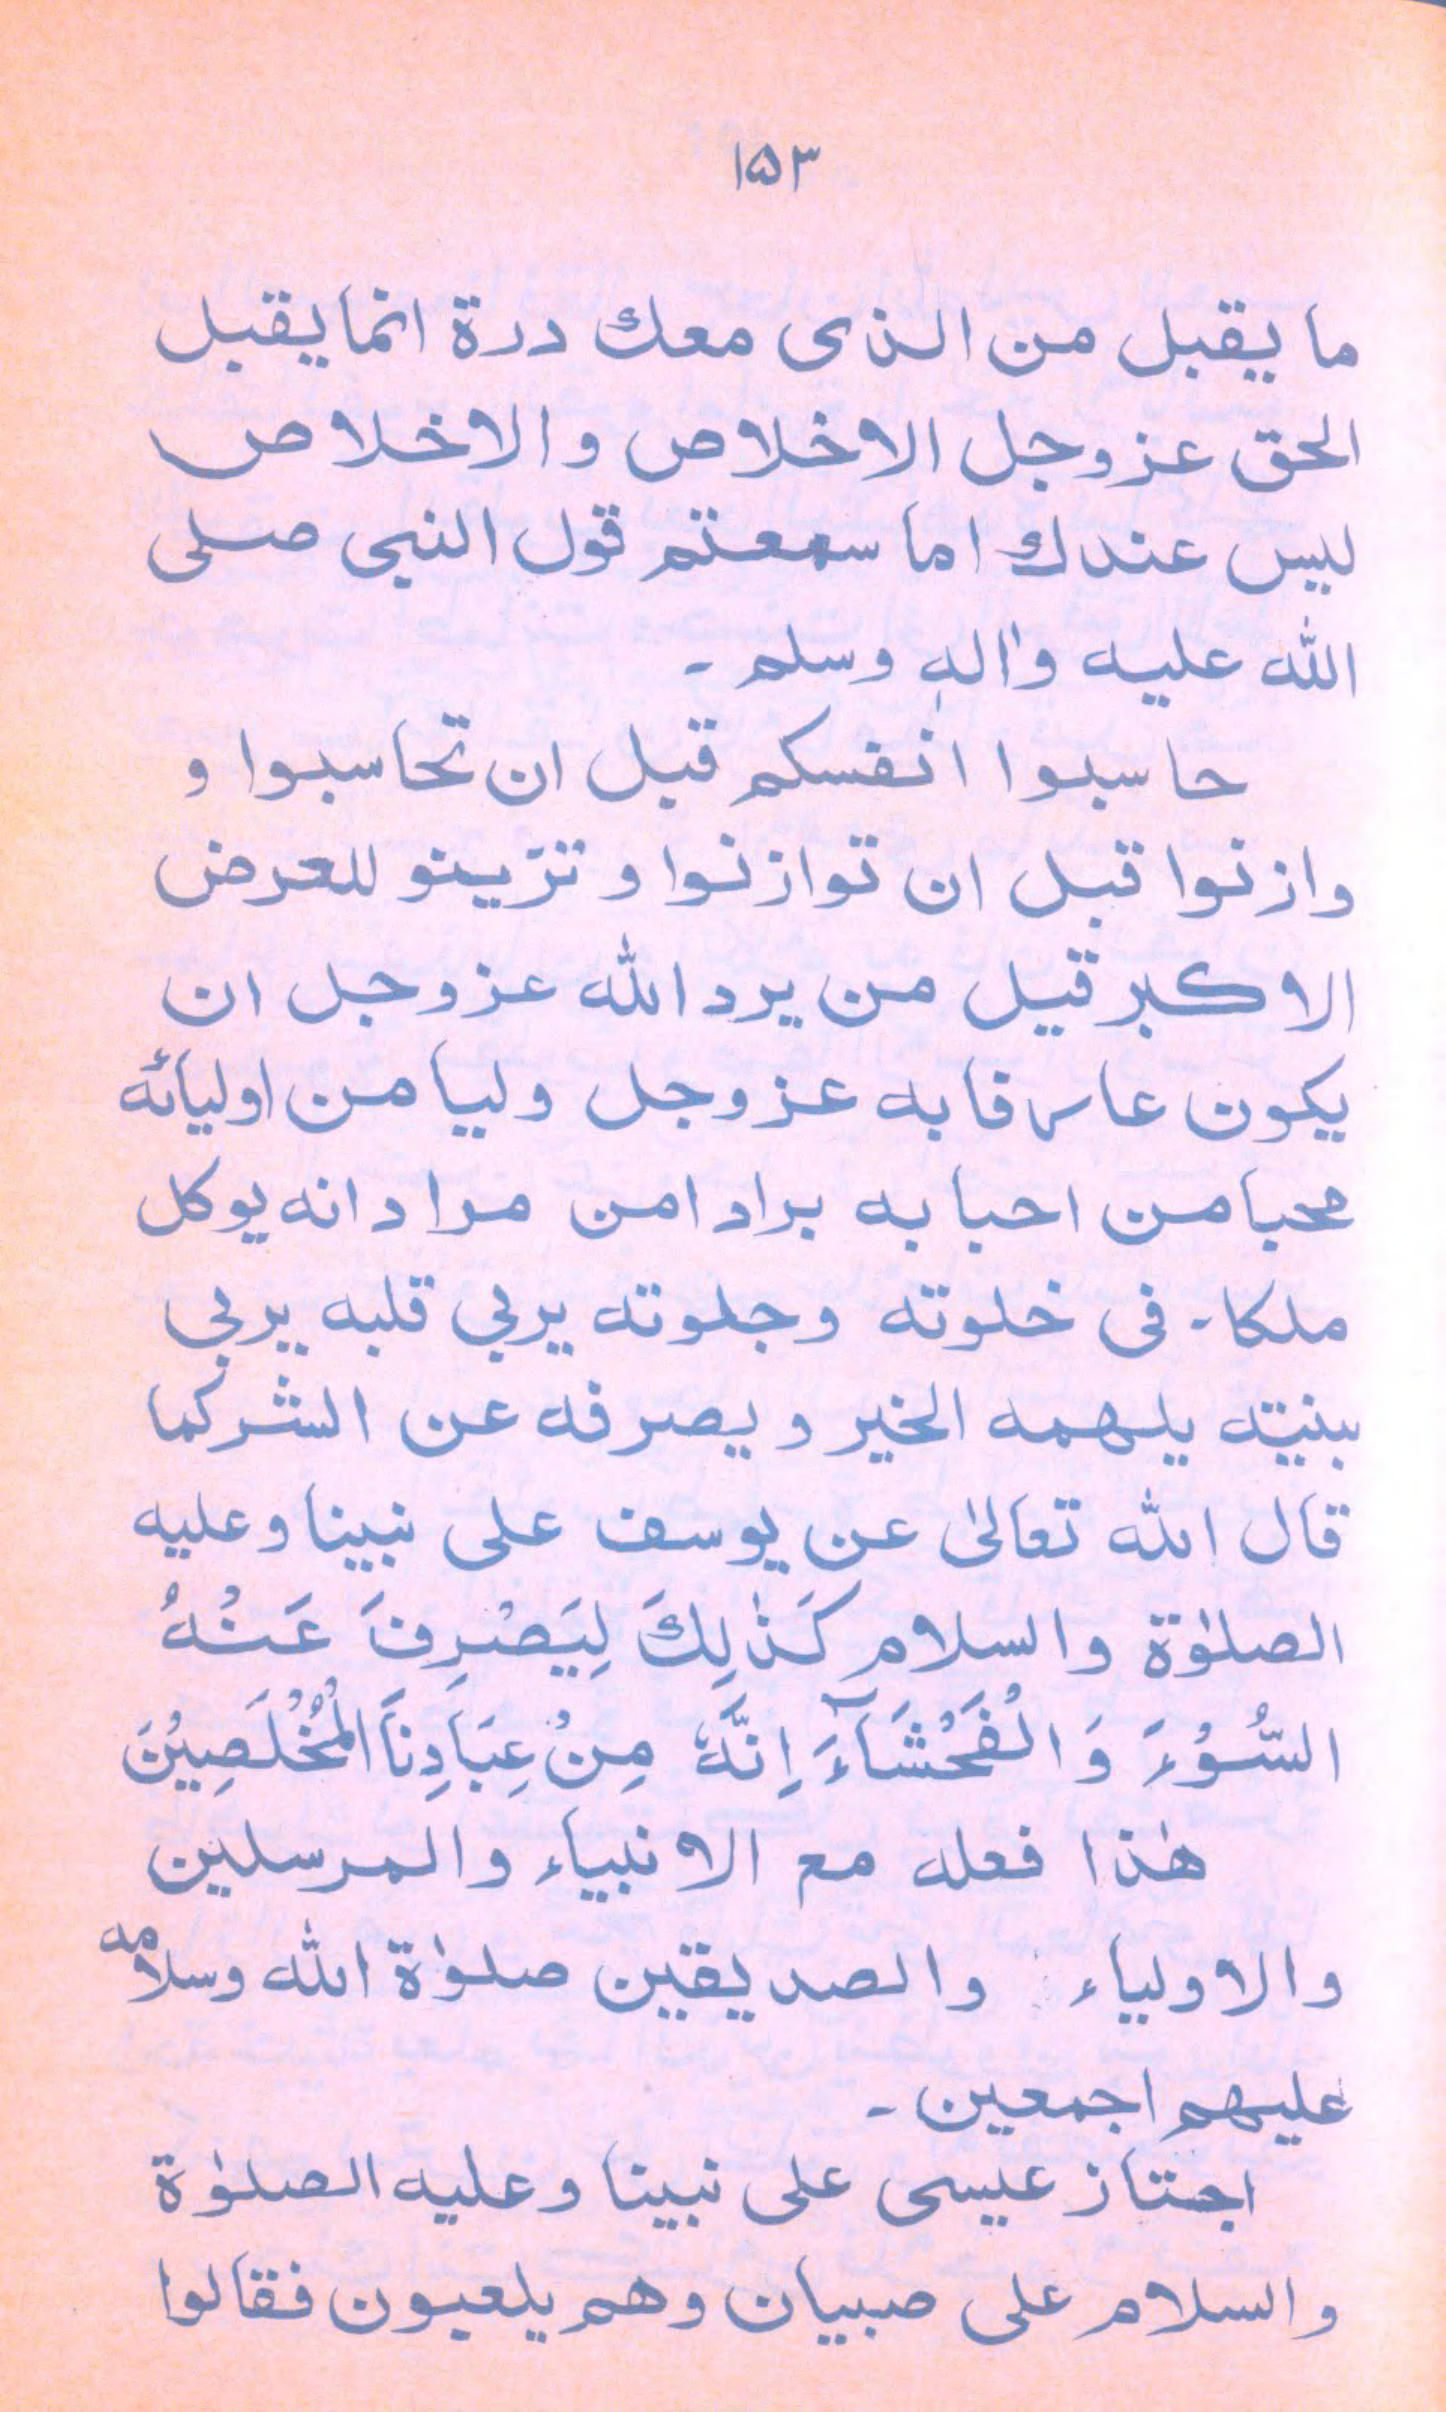 ۱۵۳
ما يقبل من الذى معك درة انما يقبل
الحق عز وجل الاخلاص والاخلاص
ليس عندك اما سمعتم قول النبى صلى
الله عليه واٰلهٖ وسلم ۔
حاسبوا انفسكم قبل ان تحاسبوا و
وازنوا قبل ان توازنوا و تزينو للعرض
الاكبر قيل من يرد الله عز وجل ان
يكون عارفا به عز وجل وليا من اوليائه
محبا من احبابه برادا من مرادانه يوكل
ملكا۔ فى خلوته وجلوته يربي قلبه يربي
بنيته يلهمه الخير ويصرفه عن الشر كما
قال الله تعالىٰ عن يوسف على نبينا وعليه
الصلوٰة والسلام كَذٰلِكَ لِيَصْرِفَ عَنْهُ
السُّوْءَ وَ الْفَحْشَآءَ اِنَّهٗ مِنْ عِبَادِنَا الْمُخْلَصِيْنَ
هٰذا فعله مع الانبياء والمرسلين
والاولياء والصديقين صلوٰة الله وسلامه
عليهم اجمعين ۔
اجتاز عيسى على نبينا وعليه الصلوٰة
والسلام على صبيان وهم يلعبون فقالوا